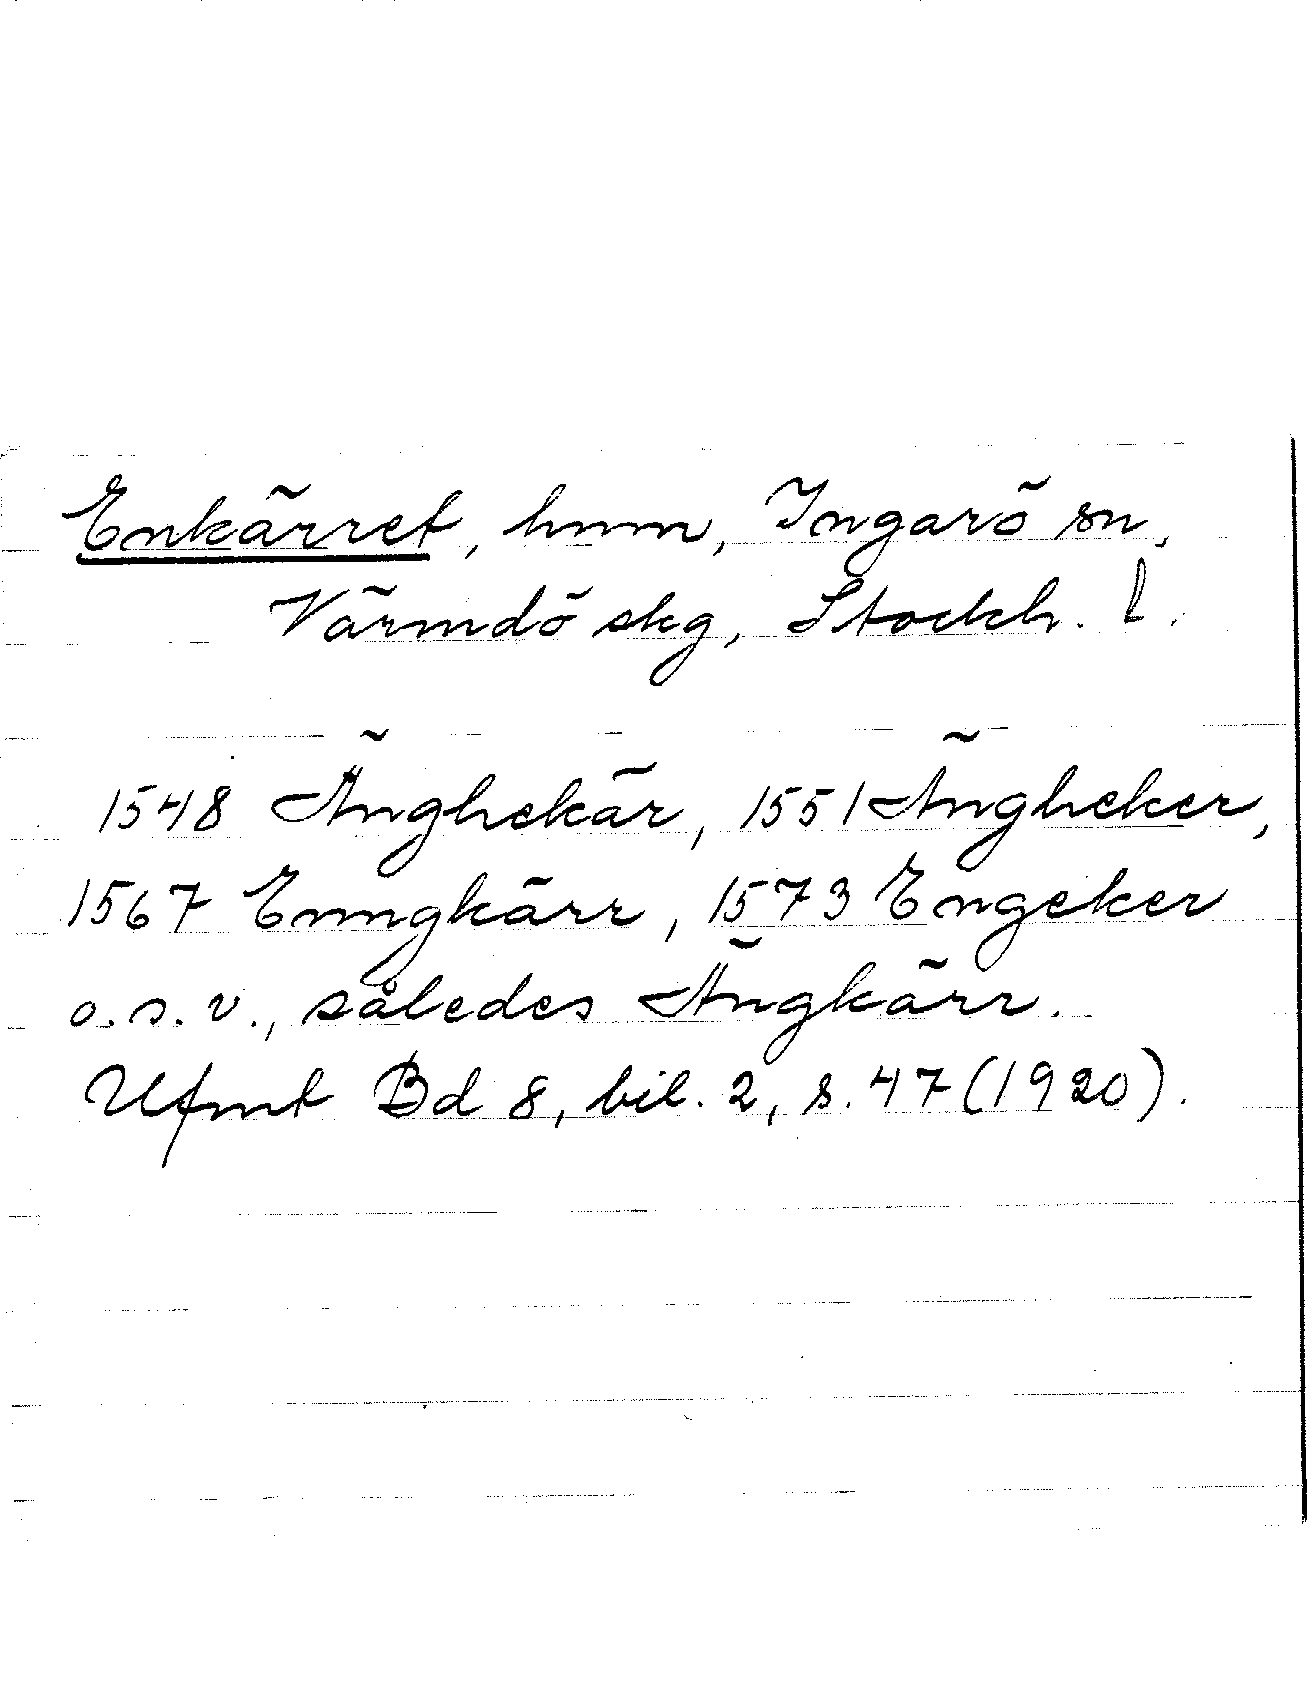 Enkärret, hmm, Ingarö sn,
Värmdö skg, Stockh. l.
1548 Änghekär, 1551 Ängheker,
1567 Enngkärr, 1573 Engeker
o.s.v., således Ängkärr.
Ufmt Bd 8, bil. 2, s. 47 (1920).